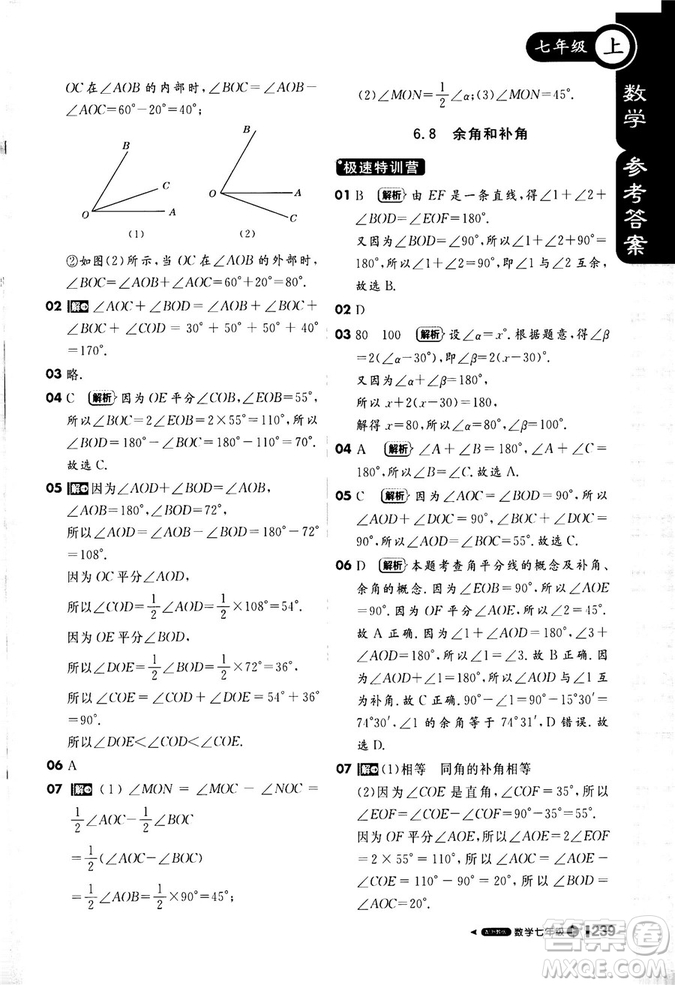 七年级 上
数学 参考答案
OC在∠AOB的内部时,∠BOC=∠AOB-
∠AOC=60°-20°=40°;
B
C
O
A
(1)
B
A
O
C
(2)
②如图(2)所示,当OC在∠AOB的外部时,
∠BOC=∠AOB+∠AOC=60°+20°=80°.
02 解 ∠AOC+∠BOD=∠AOB+∠BOC+
∠BOC+∠COD=30°+50°+50°+40°
=170°.
03 略.
04 C 解析 因为OE平分∠COB,∠EOB=55°,
所以∠BOC=2∠EOB=2×55°=110°,所以
∠BOD=180°-∠BOC=180°-110°=70°.
故选C.
05 解 因为∠AOD+∠BOD=∠AOB,
∠AOB=180°,∠BOD=72°,
所以∠AOD=∠AOB-∠BOD=180°-72°
=108°.
因为OC平分∠AOD,
所以∠COD=1/2∠AOD=1/2×108°=54°.
因为OE平分∠BOD,
所以∠DOE=1/2∠BOD=1/2×72°=36°.
所以∠COE=∠COD+∠DOE=54°+36°
=90°.
所以∠DOE<∠COD<∠COE.
06 A
07 解 (1)∠MON=∠MOC-∠NOC=
1/2∠AOC-1/2∠BOC
=1/2(∠AOC-∠BOC)
=1/2∠AOB=1/2×90°=45°;
(2)∠MON=1/2∠α;(3)∠MON=45°.
6.8 余角和补角
极速特训营
01 B 解析 由EF是一条直线,得∠1+∠2+
∠BOD=∠EOF=180°.
又因为∠BOD=90°,所以∠1+∠2=90°=
180°-90°=90°.所以∠1与∠2互余,
故选B.
02 D
03 80 100 解析 设∠α=x°.根据题意,得∠β
=2(∠α-30°),即∠β=2(x-30)°.
又因为∠α+∠β=180°,
所以x+2(x-30)=180.
解得x=80,所以∠α=80°,∠β=100°.
04 A 解析 ∠A+∠B=180°,∠A+∠C=
180°,所以∠B=∠C.故选A.
05 C 解析 因为∠AOC=∠BOD=90°,所以
∠AOD+∠COD=90°,∠BOC+∠COD=
90°,所以∠AOD=∠BOC=55°.故选C.
06 D 解析 本题考查角平分线的概念及补角、
余角的概念.∠EOB=90°,所以∠AOE=
90°.因为OF平分∠AOE,所以∠2=45°.
故A正确.因为∠1+∠AOD=180°,∠3+
∠AOD=180°,所以∠1=∠3.故B正确.因
为∠1+∠AOD=180°,所以∠AOD与∠1
互为补角.故C正确.因为90°-15°30′=
74°30′,∠1的余角等于74°30′,D错误.故
选D.
07 解 (1)相等 同角的补角相等
(2)因为∠COE是直角,∠COF=35°,所以
∠EOF=∠COE-∠COF=90°-35°=55°.
因为OF平分∠AOE,所以∠AOE=2∠EOF
=2×55°=110°,所以∠AOC=∠AOE-
∠COE=110°-90°=20°.所以∠BOD=
∠AOC=20°.
数学七年级 上 239
答案圈
MXQE.COM